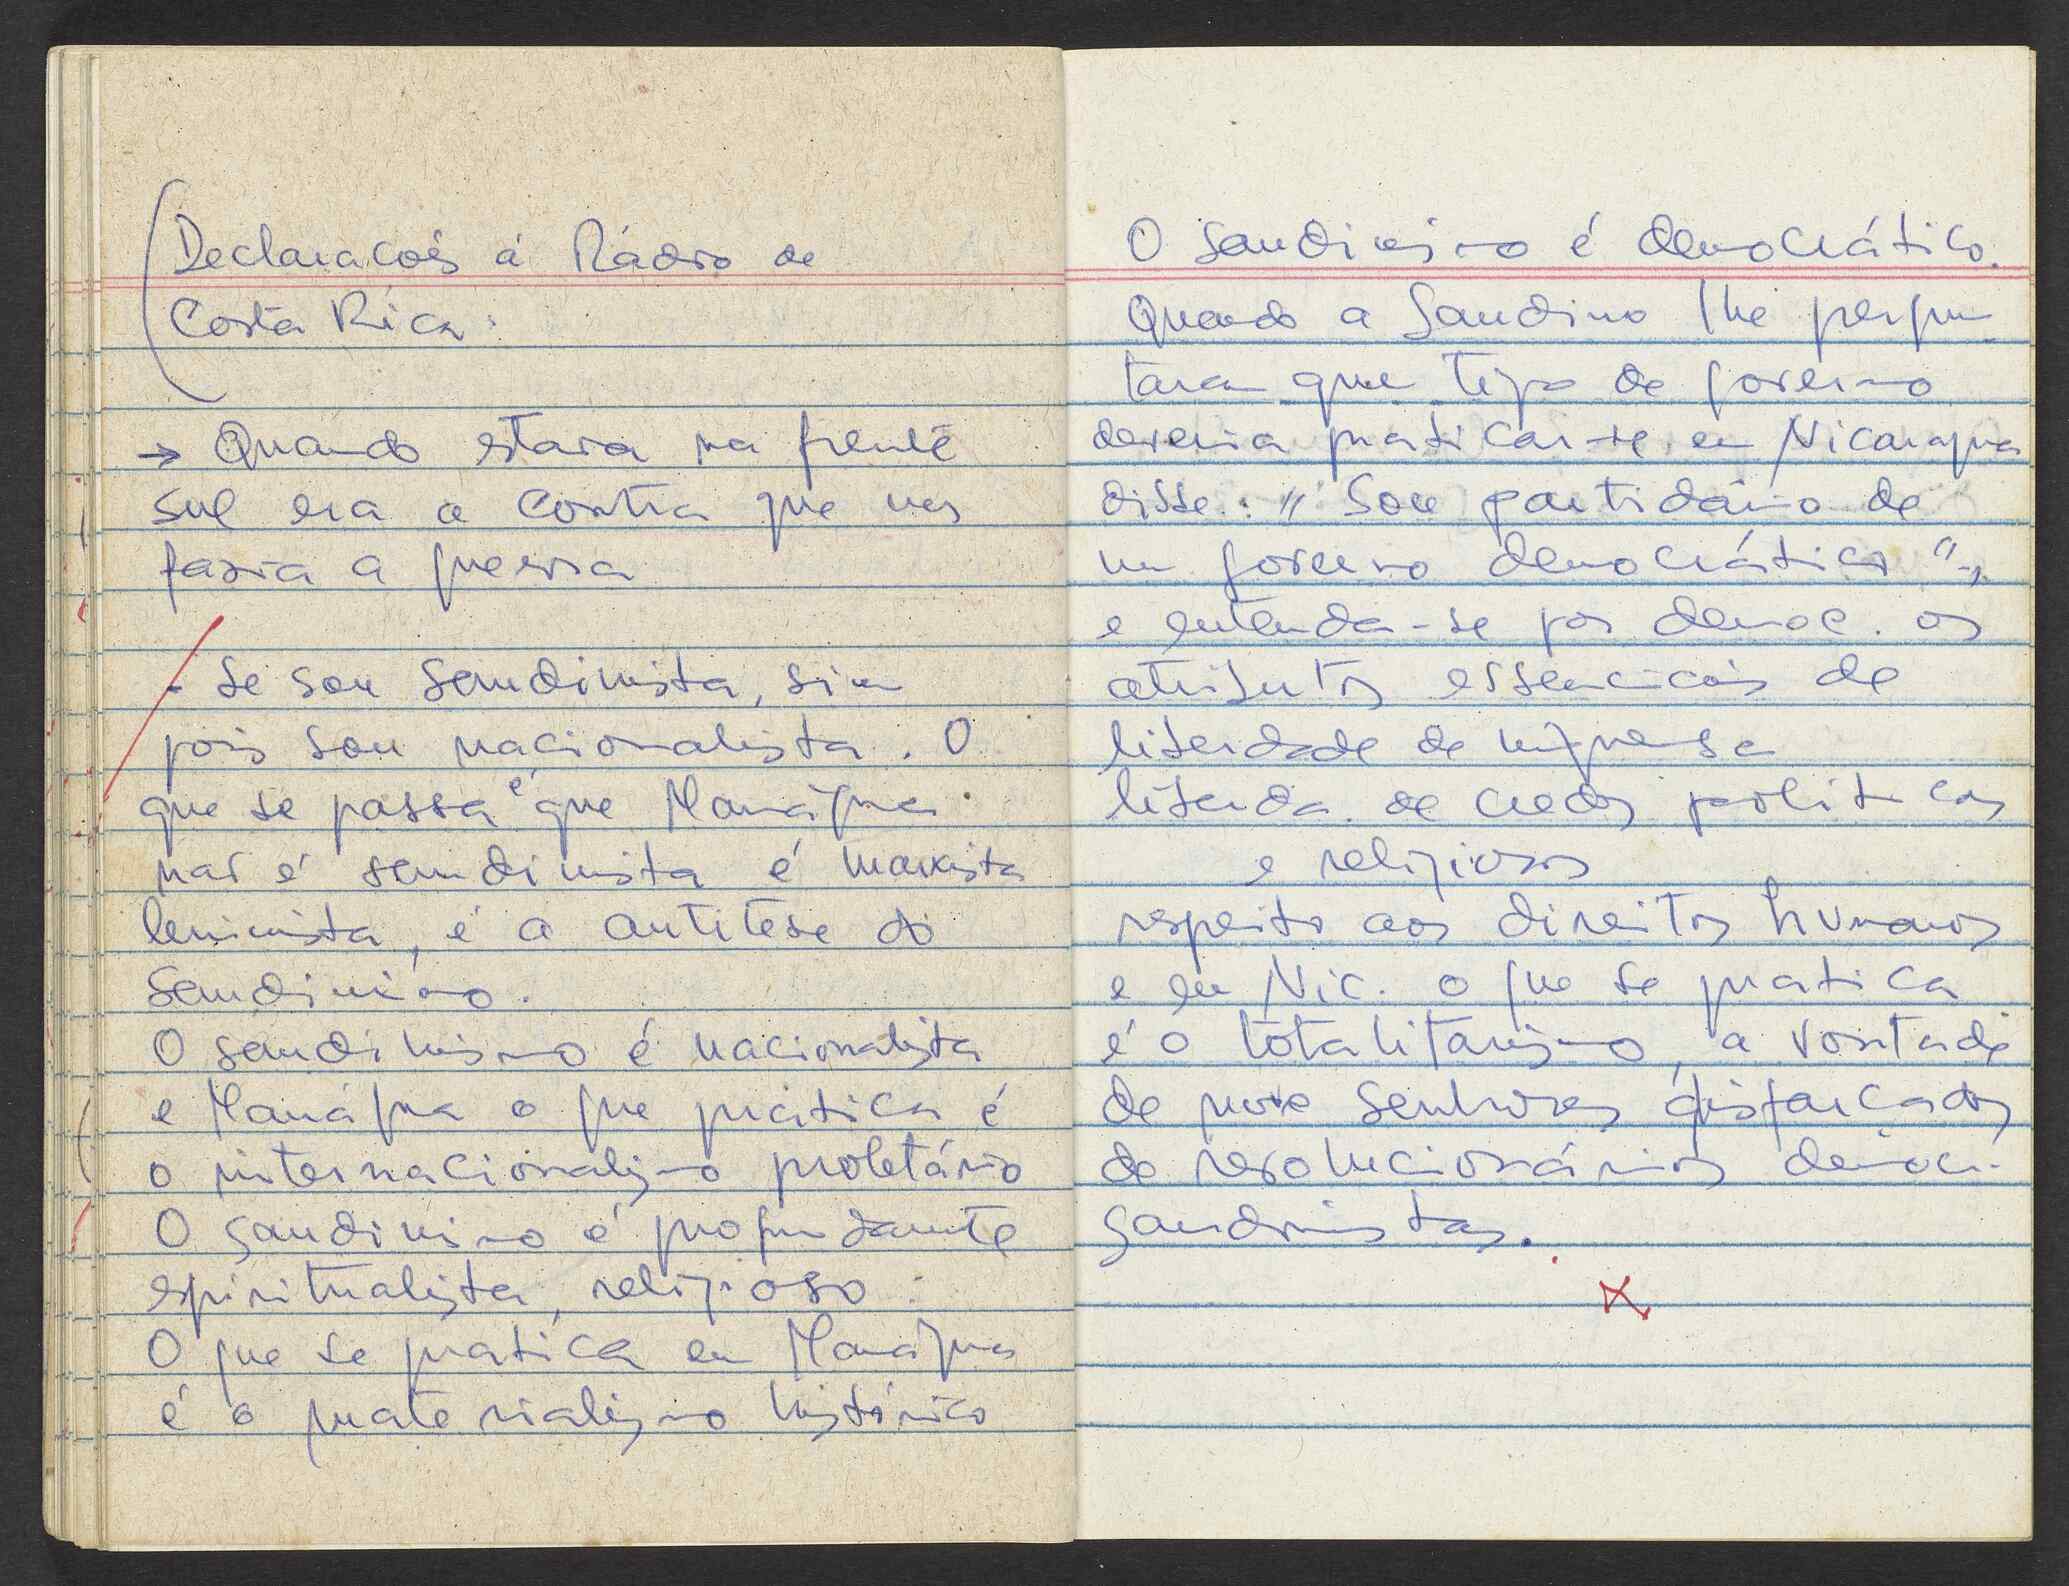 Declaracoēs á Rádio de
Costa Rica:
→ Quando estava na frente
sul era a contra que nos
fazia a guerra
- Se sou sandinista, sim
pois sou nacionalista. O
que se passa é que Manágua
não é sandinista é marxista
leninista, é a antitese do
sandinismo.
O sandinismo é nacionalista
e Manágua o que pratica é
o internacionalismo proletário
O sandinismo é profundamente
espiritualista, religioso.
O que se pratica em Manágua
é o materialismo histórico
O sandinismo é democrático.
Quando a Sandino lhe pergun
taram que tipo de governo
deveria praticar-se em Nicaragua
disse: "Sou partidário de
um governo democrático",
e entenda-se por democ. os
atributos essenciais de
liberdade de imprensa
liberda. de credos politicos
e religiosos
respeito aos direitos humanos
e em Nic. o que se pratica
é o totalitarismo, a vontade
de novos senhores disfarcados
de revolucionários democr.
sandinistas.